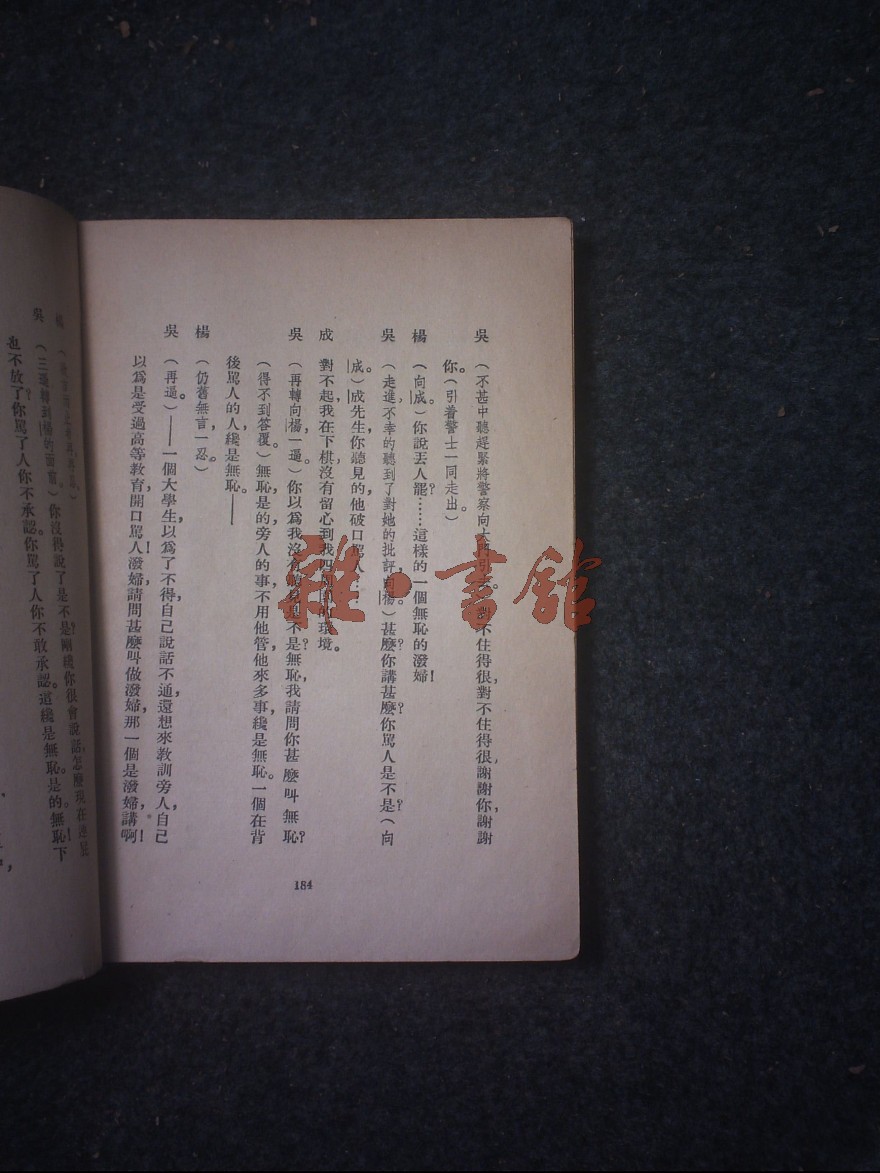 吳 (不甚中聽趕緊將警察向大門引去。)對不住得很,對不住得很,謝謝你,謝謝
你。(引着警士一同走出。)
楊 (向成。)你說丟人罷?……這樣的一個無恥的潑婦!
吳 (走進,不幸的聽到了對她的批評向楊。)甚麼?你講甚麼?你罵人是不是?(向
成。)成先生你聽見的,他破口罵人……
成 對不起,我在下棋,沒有留心到我四圍的環境。
吳 (再轉向楊一逼。)你以爲我沒有聽見是不是?無恥,我請問你甚麼叫無恥?
(得不到答覆。)無恥,是的,旁人的事不用他管,他來多事,纔是無恥。一個在背
後罵人的人,纔是無恥。——
楊 (仍舊無言一忍。)
吳 (再逼)——一個大學生,以爲了不得,自己說話不通,還想來教訓旁人,自己
以爲是受過高等教育,開口罵人!潑婦,請問甚麼叫做潑婦,那一個是潑婦,講啊!
184
楊
吳 (三逼轉到楊的面前)你沒得說了是不是?剛纔你很會說話,怎麼現在
也不放了?你罵了人你不承認。你罵了人你不敢承認。這纔是無恥。是的,無恥!下
雜·書館